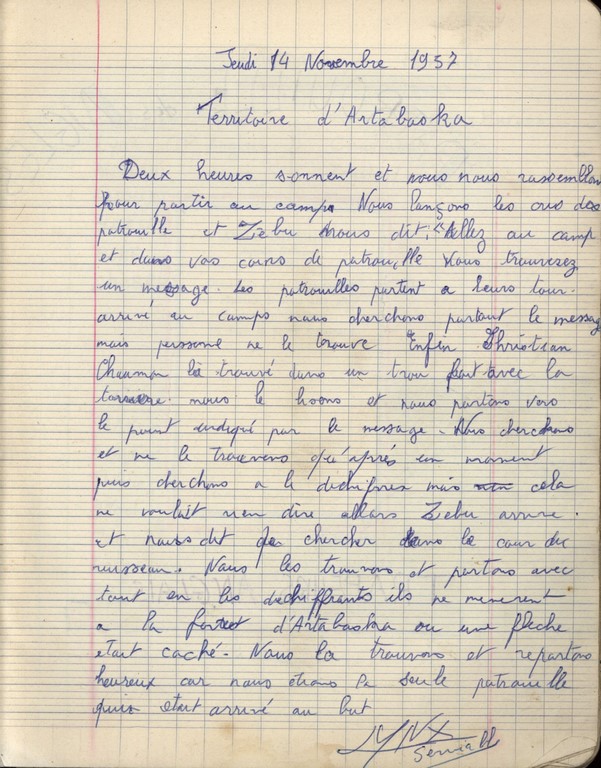 Jeudi 14 Novembre 1957
Territoire d'Artabaska
Deux heures sonnent et nous nous rassemblon
pour partir au camp. Nous lançons les cris des
patrouille et Zébu nous dit, "Allez au camp
et dans vos coins de patrouille vous trouverez
un message. Les patrouilles partent a leurs tour.
arrivé au camps nous cherchons partout le message
mais personne ne le trouve Enfin Christian
Chaumon la trouvé dans un trou fait avec la
tariere. nous le lisons et nous partons vers
le point indiqué par le message. Nous cherchons
et ne le trouvons qu'après un moment
puis cherchons a le dechifrer mais cela
ne voulait rien dire allors Zebu arrive.
et nous dit de chercher dans le cour du
ruisseau. Nous les trouvons et partons avec
tout en les dechiffrants ils ne menerent
a la foret d'Artabaska ou une fleche
etait caché. Nous la trouvons et repartons
heureux car nous étions la seule patrouille
qui etait arrivé au but
LYNX